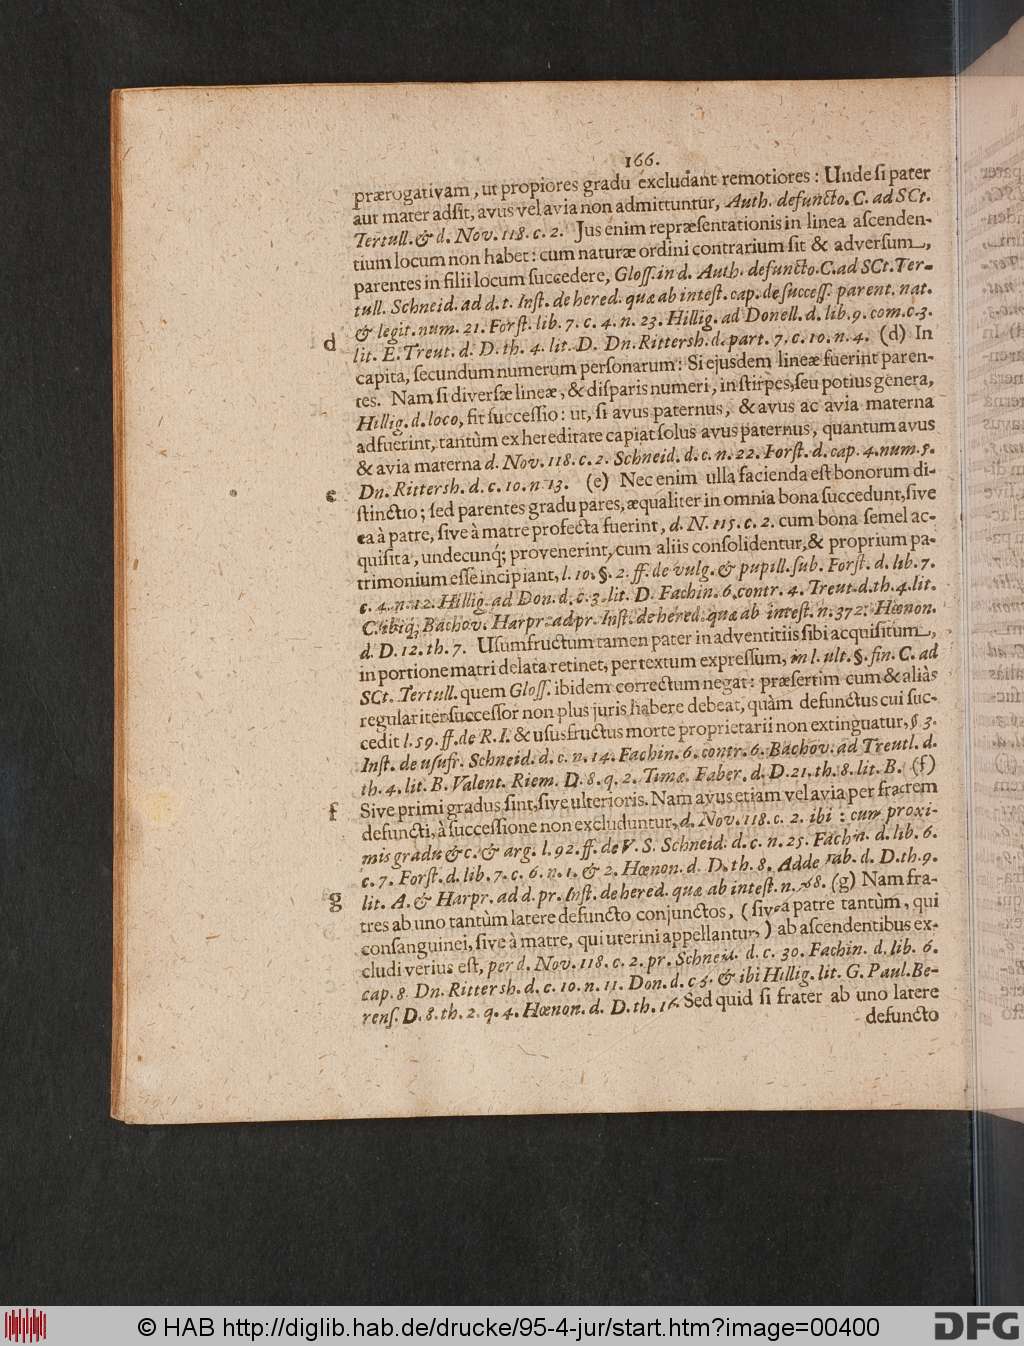 166.
prærogativam, ut propiores gradu excludant remotiores: Unde si pater
aut mater adsit, avus vel avia non admittuntur, Auth. defuncto. C. ad SCt.
Tertull. & d. Nov. 118. c. 2. Jus enim repræsentationis in linea ascenden-
tium locum non habet: cum naturæ ordini contrarium sit & adversum,
parentes in filii locum succedere, Gloss. in d. Auth. defuncto. C. ad SCt. Ter-
tull. Schneid. ad d. t. Inst. de hered. quæ ab intest. cap. de success. parent. nat.
& legit. num. 21. Forst. lib. 7. c. 4. n. 23. Hillig. ad Donell. d. lib. 9. com. c. 3.
d lit. E. Treut. d. D. th. 4. lit. D. Dn. Rittersh. d. part. 7. c. 10. n. 4. (d) In
capita, secundum numerum personarum: Si ejusdem lineæ fuerint paren-
tes. Nam si diversæ lineæ, & disparis numeri, in stirpes, seu potius genera,
Hillig. d. loco, fit successio: ut, si avus paternus, & avus ac avia materna
adfuerint, tantùm ex hereditate capiat solus avus paternus, quantum avus
& avia materna d. Nov. 118. c. 2. Schneid. d. c. n. 22. Forst. d. cap. 4. num. 5.
e Dn. Rittersh. d. c. 10. n. 13. (e) Nec enim ulla facienda est bonorum di-
stinctio; sed parentes gradu pares, æqualiter in omnia bona succedunt, sive
ea à patre, sive à matre profecta fuerint, d. N. 115. c. 2. cum bona semel ac-
quisita, undecunq; provenerint, cum aliis consolidentur, & proprium pa-
trimonium esse incipiant, l. 10. §. 2. ff. de vulg. & pupill. sub. Forst. d. lib. 7.
c. 4. n. 12. Hillig. ad Don. d. c. 3. lit. D. Fachin. 6. contr. 4. Treut. d. th. 4. lit.
C. ibiq; Bachov. Harpr. ad pr. Inst. de hered. quæ ab intest. n. 372. Hœnon.
d. D. 12. th. 7. Usumfructum tamen pater in adventitiis sibi acquisitum,
in portione matri delata retinet, per textum expressum, in l. ult. §. fin. C. ad
SCt. Tertull. quem Gloss. ibidem correctum negat: præsertim cum & aliàs
regulariter successor non plus juris habere debeat, quàm defunctus cui suc-
cedit l. 59. ff. de R. I. & ususfructus morte proprietarii non extinguatur, § 3.
Inst. de usufr. Schneid. d. c. n. 14. Fachin. 6. contr. 6. Bachov. ad Treutl. d.
th. 4. lit. B. Valent. Riem. D. 8. q. 2. Timæ. Faber. d. D. 21. th. 8. lit. B. (f)
f Sive primi gradus sint, sive ulterioris. Nam avus etiam vel avia per fratrem
defuncti, à successione non excluduntur, d. Nov. 118. c. 2. ibi: cum proxi-
mis gradu &c. & arg. l. 92. ff. de V. S. Schneid. d. c. n. 25. Fachin. d. lib. 6.
c. 7. Forst. d. lib. 7. c. 6. n. 1. & 2. Hœnon. d. D. th. 8. Adde Fab. d. D. th. 9.
g lit. A. & Harpr. ad d. pr. Inst. de hered. quæ ab intest. n. 368. (g) Nam fra-
tres ab uno tantùm latere defuncto conjunctos, (sive à patre tantùm, qui
consanguinei, sive à matre, qui uterini appellantur,) ab ascendentibus ex-
cludi verius est, per d. Nov. 118. c. 2. pr. Schneid. d. c. 30. Fachin. d. lib. 6.
cap. 8. Dn. Rittersh. d. c. 10. n. 11. Don. d. c 5. & ibi Hillig. lit. G. Paul. Be-
rens. D. 8. th. 2. q. 4. Hœnon. d. D. th. 16. Sed quid si frater ab uno latere
defuncto
© HAB http://diglib.hab.de/drucke/95-4-jur/start.htm?image=00400
DFG